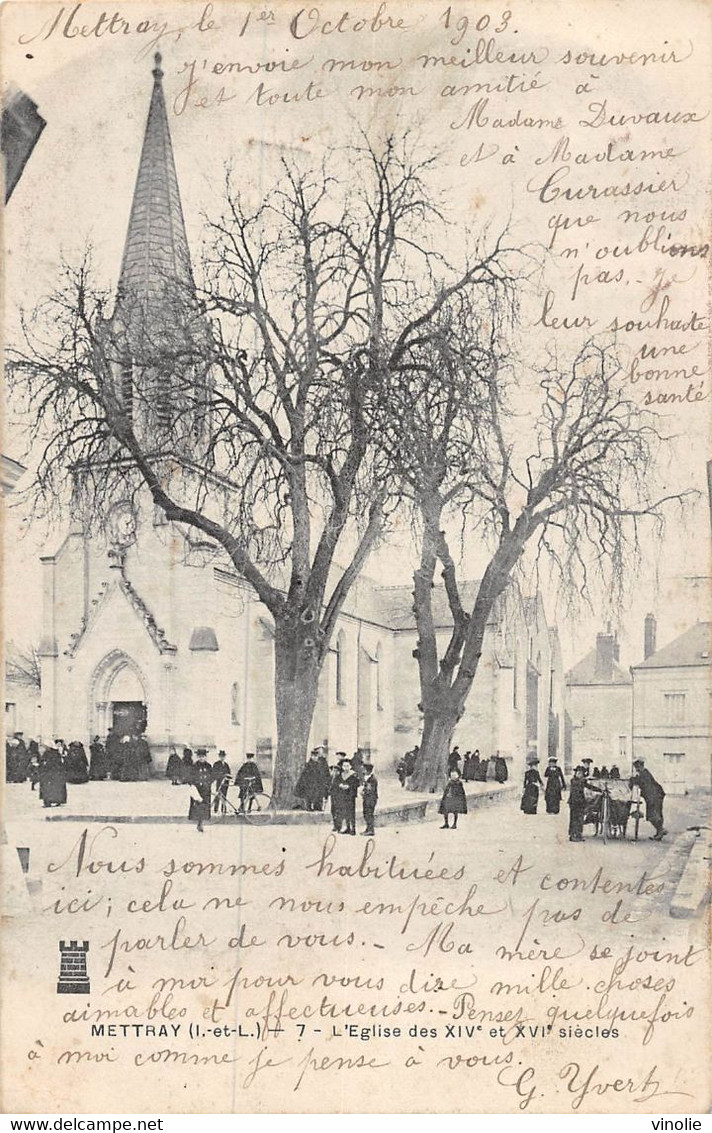 Mettray, le 1er Octobre 1903.
J'envoie mon meilleur souvenir
et toute mon amitié à
Madame Duvaux
et à Madame
Curassier
que nous
n'oublions
pas. - Je
leur souhaite
une
bonne
santé
Nous sommes habituées et contentes
ici ; cela ne nous empêche pas de
parler de vous. - Ma mère se joint
à moi pour vous dire mille choses
aimables et affectueuses. - Pensez quelquefois
METTRAY (I.-et-L.) - 7 - L'Eglise des XIVe et XVIe siècles
à moi comme je pense à vous.
G. Yvert
vinolie